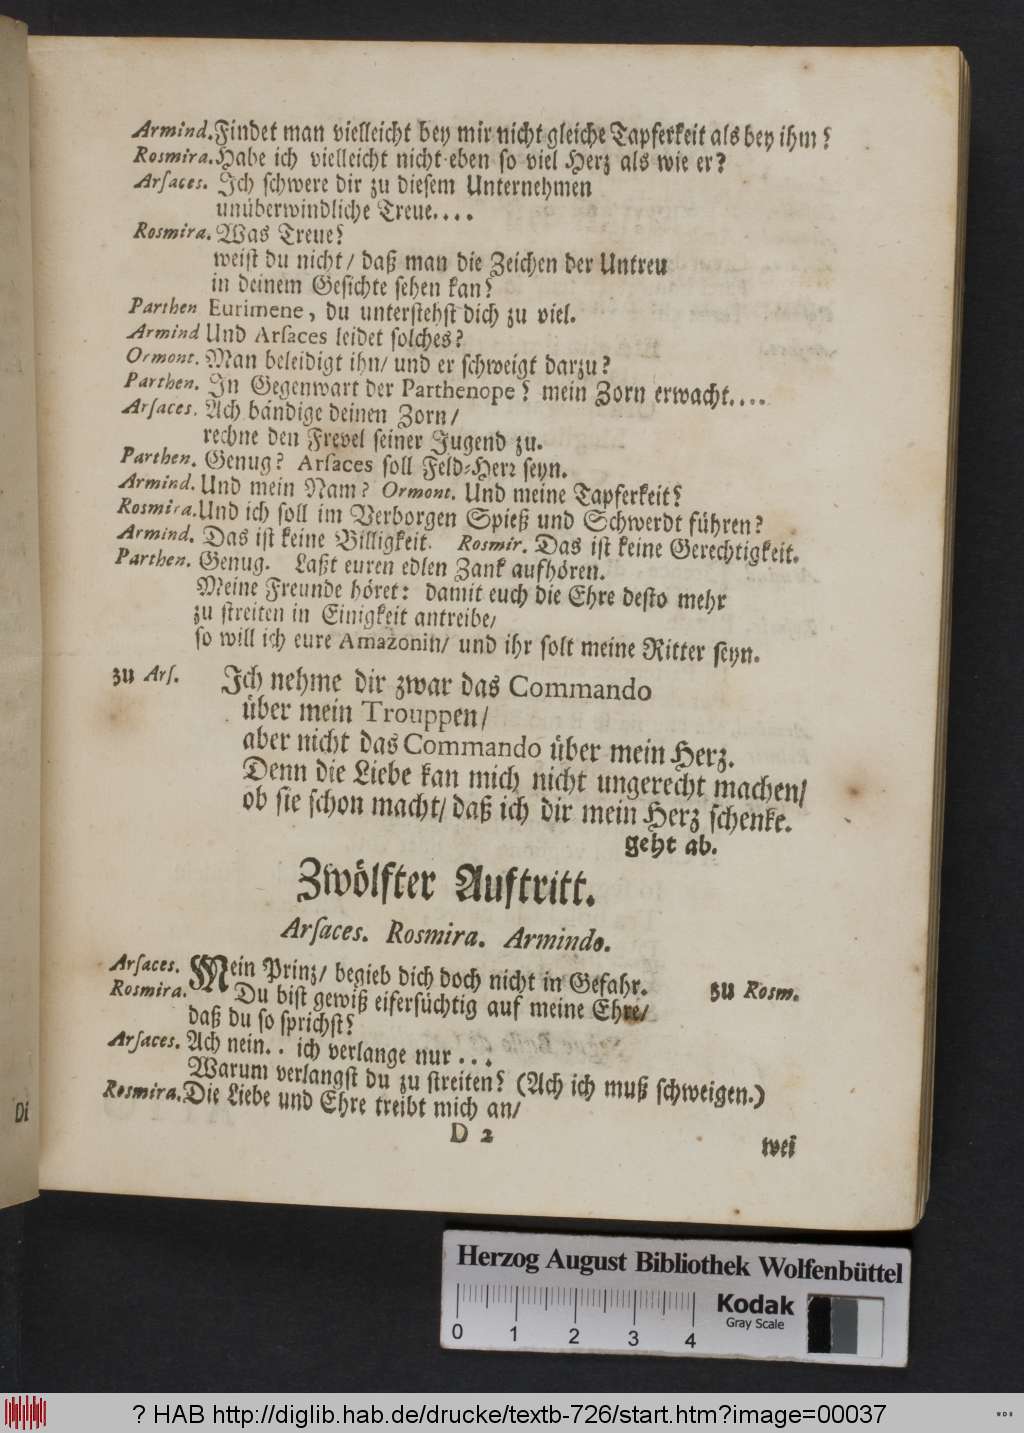 Armind. Findet man vielleicht bey mir nicht gleiche Tapferkeit als bey ihm?
Rosmira. Habe ich vielleicht nicht eben so viel Herz als wie er?
Arſaces. Ich schwere dir zu diesem Unternehmen
unüberwindliche Treue....
Rosmira. Was Treue?
weist du nicht/ daß man die Zeichen der Untreu
in deinem Gesichte sehen kan?
Parthen Eurimene, du unterstehst dich zu viel.
Armind Und Arſaces leidet solches?
Ormont. Man beleidigt ihn/ und er schweigt darzu?
Parthen. In Gegenwart der Parthenope? mein Zorn erwacht....
Arſaces. Ach bändige deinen Zorn/
rechne den Frevel seiner Jugend zu.
Parthen. Genug? Arſaces soll Feld-Herr seyn.
Armind. Und mein Nam? Ormont. Und meine Tapferkeit?
Rosmira. Und ich soll im Verborgen Spieß und Schwerdt führen?
Armind. Das ist keine Billigkeit. Rosmir. Das ist keine Gerechtigkeit.
Parthen. Genug. Laßt euren edlen Zank aufhören.
Meine Freunde höret: damit euch die Ehre desto mehr
zu streiten in Einigkeit antreibe/
so will ich eure Amazonin/ und ihr solt meine Ritter seyn.
zu Arſ. Ich nehme dir zwar das Commando
über mein Trouppen/
aber nicht das Commando über mein Herz.
Denn die Liebe kan mich nicht ungerecht machen/
ob sie schon macht/ daß ich dir mein Herz schenke.
geht ab.
Zwölfter Auftritt.
Arſaces. Rosmira. Armindo.
Arſaces. Mein Prinz/ begieb dich doch nicht in Gefahr. zu Rosm.
Rosmira. Du bist gewiß eifersüchtig auf meine Ehre/
daß du so sprichst?
Arſaces. Ach nein.. ich verlange nur ...
Warum verlangst du zu streiten? (Ach ich muß schweigen.)
Rosmira. Die Liebe und Ehre treibt mich an/
D 2
wei
Di
Herzog August Bibliothek Wolfenbüttel
Kodak
Gray Scale
0 1 2 3 4
? HAB http://diglib.hab.de/drucke/textb-726/start.htm?image=00037